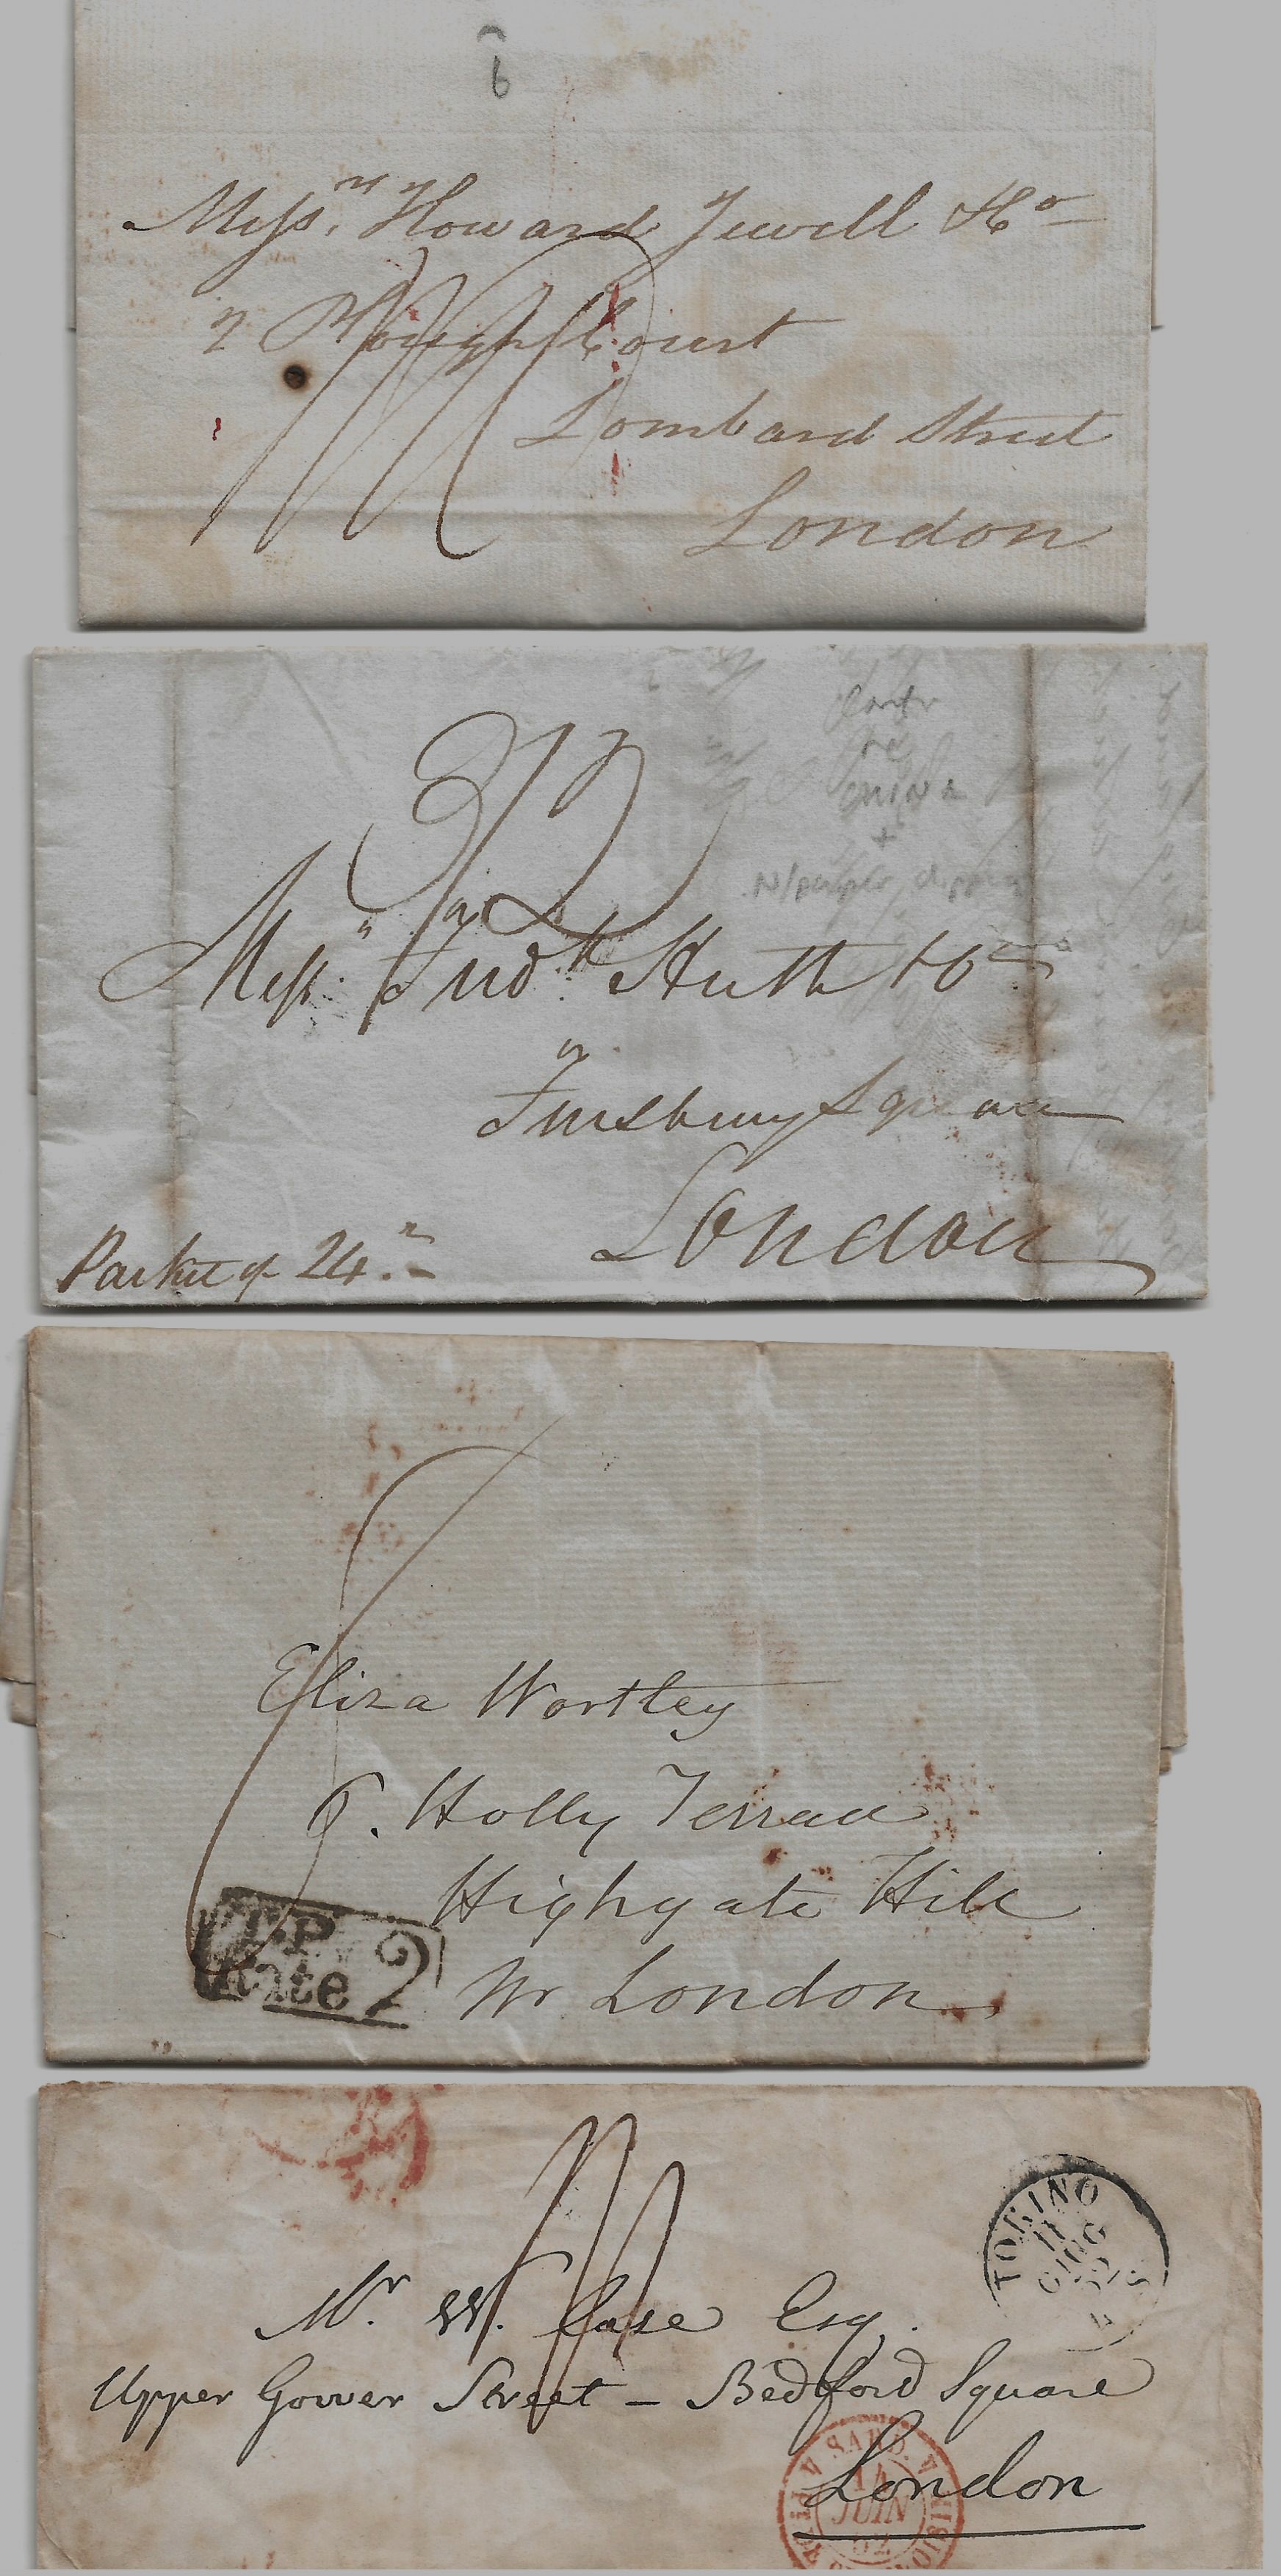 6
Messrs Howard Jewell & Co
2 Plough Court
Lombard Street
London
Messrs Fredk Huth & Co
Finsbury Square
London
Packet of 24th
Eliza Wortley
6. Holly Terrace
Highgate Hill
Nr London
T.P
Rate 2
TORINO
11
GIUG
52
Mr. W. Case Esq.
Upper Gower Street – Bedford Square
London
SARD.
14
JUIN
52